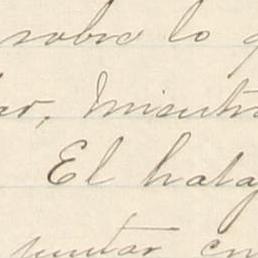 sobre lo
mientr
El hala
juntar en